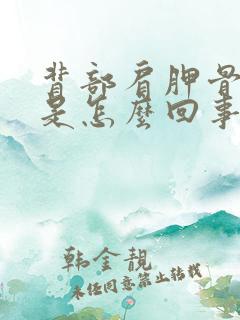 背部肩胛骨
是怎麼回事
韩金靚
未经同意禁止转载